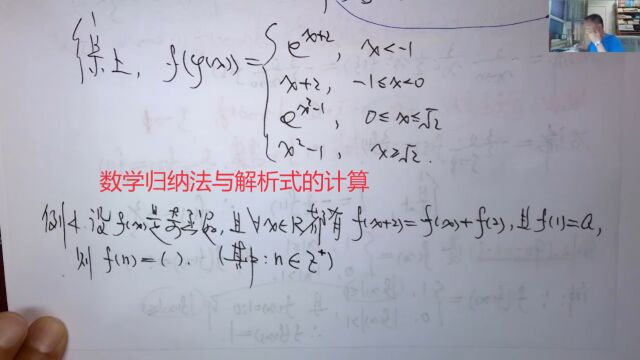 综上, f(φ(x)) = { e^{x+2}, x<-1
x+2, -1≤x<0
e^{x²-1}, 0≤x≤√2
x²-1, x≥√2.
数学归纳法与解析式的计算
例4. 设f(x)是奇函数, 且∀x∈R都有 f(x+2)=f(x)+f(2), 且f(1)=a,
则 f(n)=( ). (其中: n∈Z⁺)